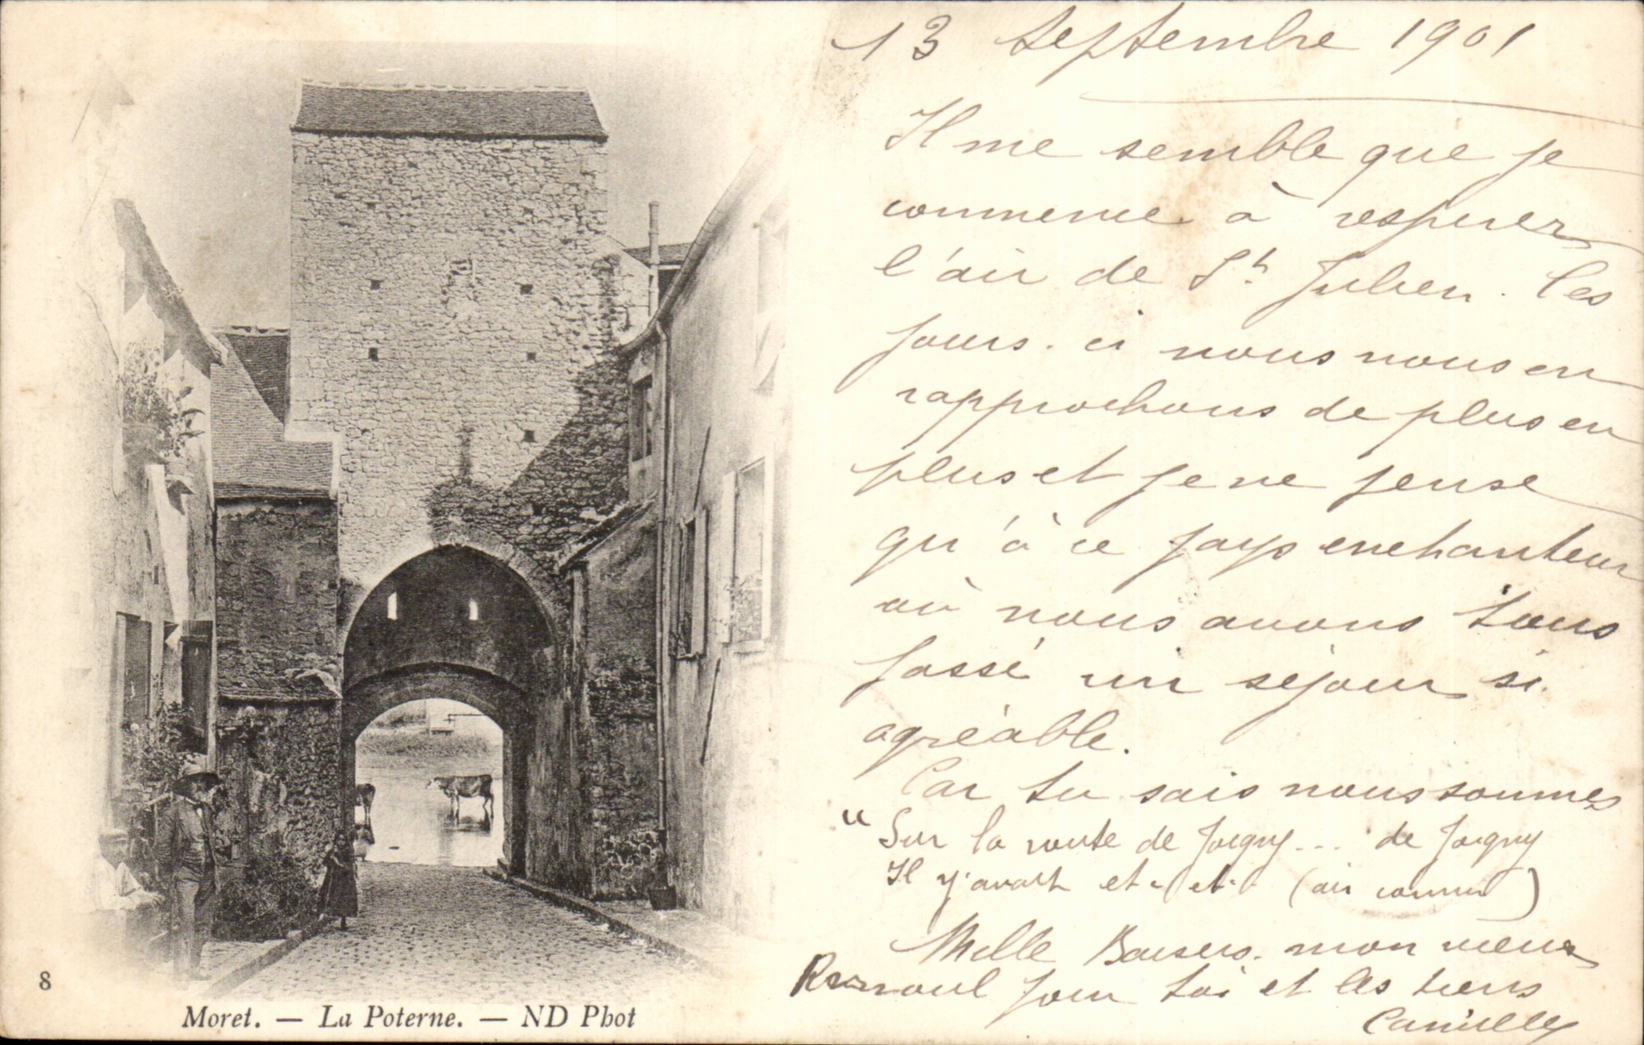 13 Septembre 1901
Il me semble que je
commence à respirer
l'air de St Julien. Ces
jours-ci nous nous en
rapprochons de plus en
plus et je ne pense
qu'à ce pays enchanteur
où nous avons tous
passé un séjour si
agréable.
Car tu sais nous sommes
"Sur la route de Joigny... de Joigny
Il y'avait et. et. (air connu)
Mille Baisers. mon vieux
pour toi et les tiens
Camille
8
Moret. — La Poterne. — ND Phot